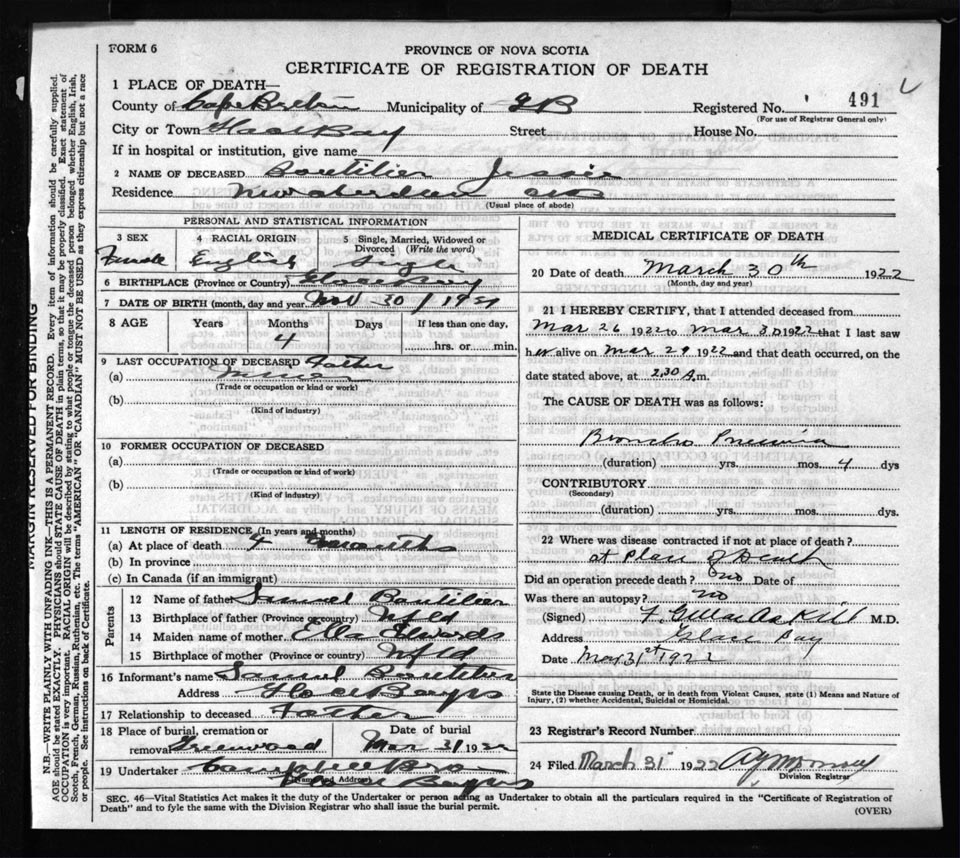 FORM 6
PROVINCE OF NOVA SCOTIA
CERTIFICATE OF REGISTRATION OF DEATH
1 PLACE OF DEATH—
County of Cape Breton Municipality of G B Registered No. 491
(For use of Registrar General only)
City or Town Glace Bay Street House No.
If in hospital or institution, give name
2 NAME OF DECEASED Boutilier Jessie
Residence New Aberdeen
(Usual place of abode)
PERSONAL AND STATISTICAL INFORMATION
3 SEX 4 RACIAL ORIGIN 5 Single, Married, Widowed or Divorced (Write the word)
Female English Single
6 BIRTHPLACE (Province or Country) Glace Bay
7 DATE OF BIRTH (month, day and year) Nov 30 / 1921
8 AGE Years Months Days If less than one day,
4 hrs. or min.
9 LAST OCCUPATION OF DECEASED Father
(a) Miner
(Trade or occupation or kind or work)
(b)
(Kind of industry)
10 FORMER OCCUPATION OF DECEASED
(a)
(Trade or occupation or kind of work)
(b)
(Kind of industry)
11 LENGTH OF RESIDENCE (In years and months)
(a) At place of death 4 months
(b) In province
(c) In Canada (if an immigrant)
Parents
12 Name of father Samuel Boutilier
13 Birthplace of father (Province or country) Nfld
14 Maiden name of mother Ella Edwards
15 Birthplace of mother (Province or country) Nfld
16 Informant's name Samuel Boutilier
Address Glace Bay
17 Relationship to deceased Father
18 Place of burial, cremation or removal Greenwood Date of burial Mar 31 1922
19 Undertaker Campbell Bros
(Name and Address) Glace Bay
MEDICAL CERTIFICATE OF DEATH
20 Date of death March 30th 1922
(Month, day and year)
21 I HEREBY CERTIFY, that I attended deceased from
Mar 26 1922 to Mar 30 1922 that I last saw
her alive on Mar 29 1922 and that death occurred, on the
date stated above, at 2.30 A.m.
The CAUSE OF DEATH was as follows:
Broncho Pneumonia
(duration) yrs. mos 4 dys
CONTRIBUTORY
(Secondary)
(duration) yrs. mos. dys
22 Where was disease contracted if not at place of death?
at place of death
Did an operation precede death? no Date of
Was there an autopsy? no
(Signed) M.D.
Address Glace Bay
Date Mar 31st 1922
State the Disease causing Death, or in death from Violent Causes, state (1) Means and Nature of
Injury, (2) whether Accidental, Suicidal or Homicidal.
23 Registrar's Record Number
24 Filed March 31 1922
Division Registrar
SEC. 46—Vital Statistics Act makes it the duty of the Undertaker or person acting as Undertaker to obtain all the particulars required in the "Certificate of Registration of
Death" and to fyle the same with the Division Registrar who shall issue the burial permit.
(OVER)
MARGIN RESERVED FOR BINDING
N.B.—WRITE PLAINLY WITH UNFADING INK—THIS IS A PERMANENT RECORD. Every item of information should be carefully supplied.
AGE should be stated EXACTLY. PHYSICIANS should STATE CAUSE OF DEATH in plain terms, so that it may be properly classified. Exact statement of
OCCUPATION is very important. RACIAL ORIGIN will be described by stating to what people or tongue the deceased person belonged whether English, Irish,
Scotch, French, German, Russian, Ruthenian, etc. The terms "AMERICAN" OR "CANADIAN" MUST NOT BE USED as they express citizenship but not a race
or people. See instructions on back of Certificate.